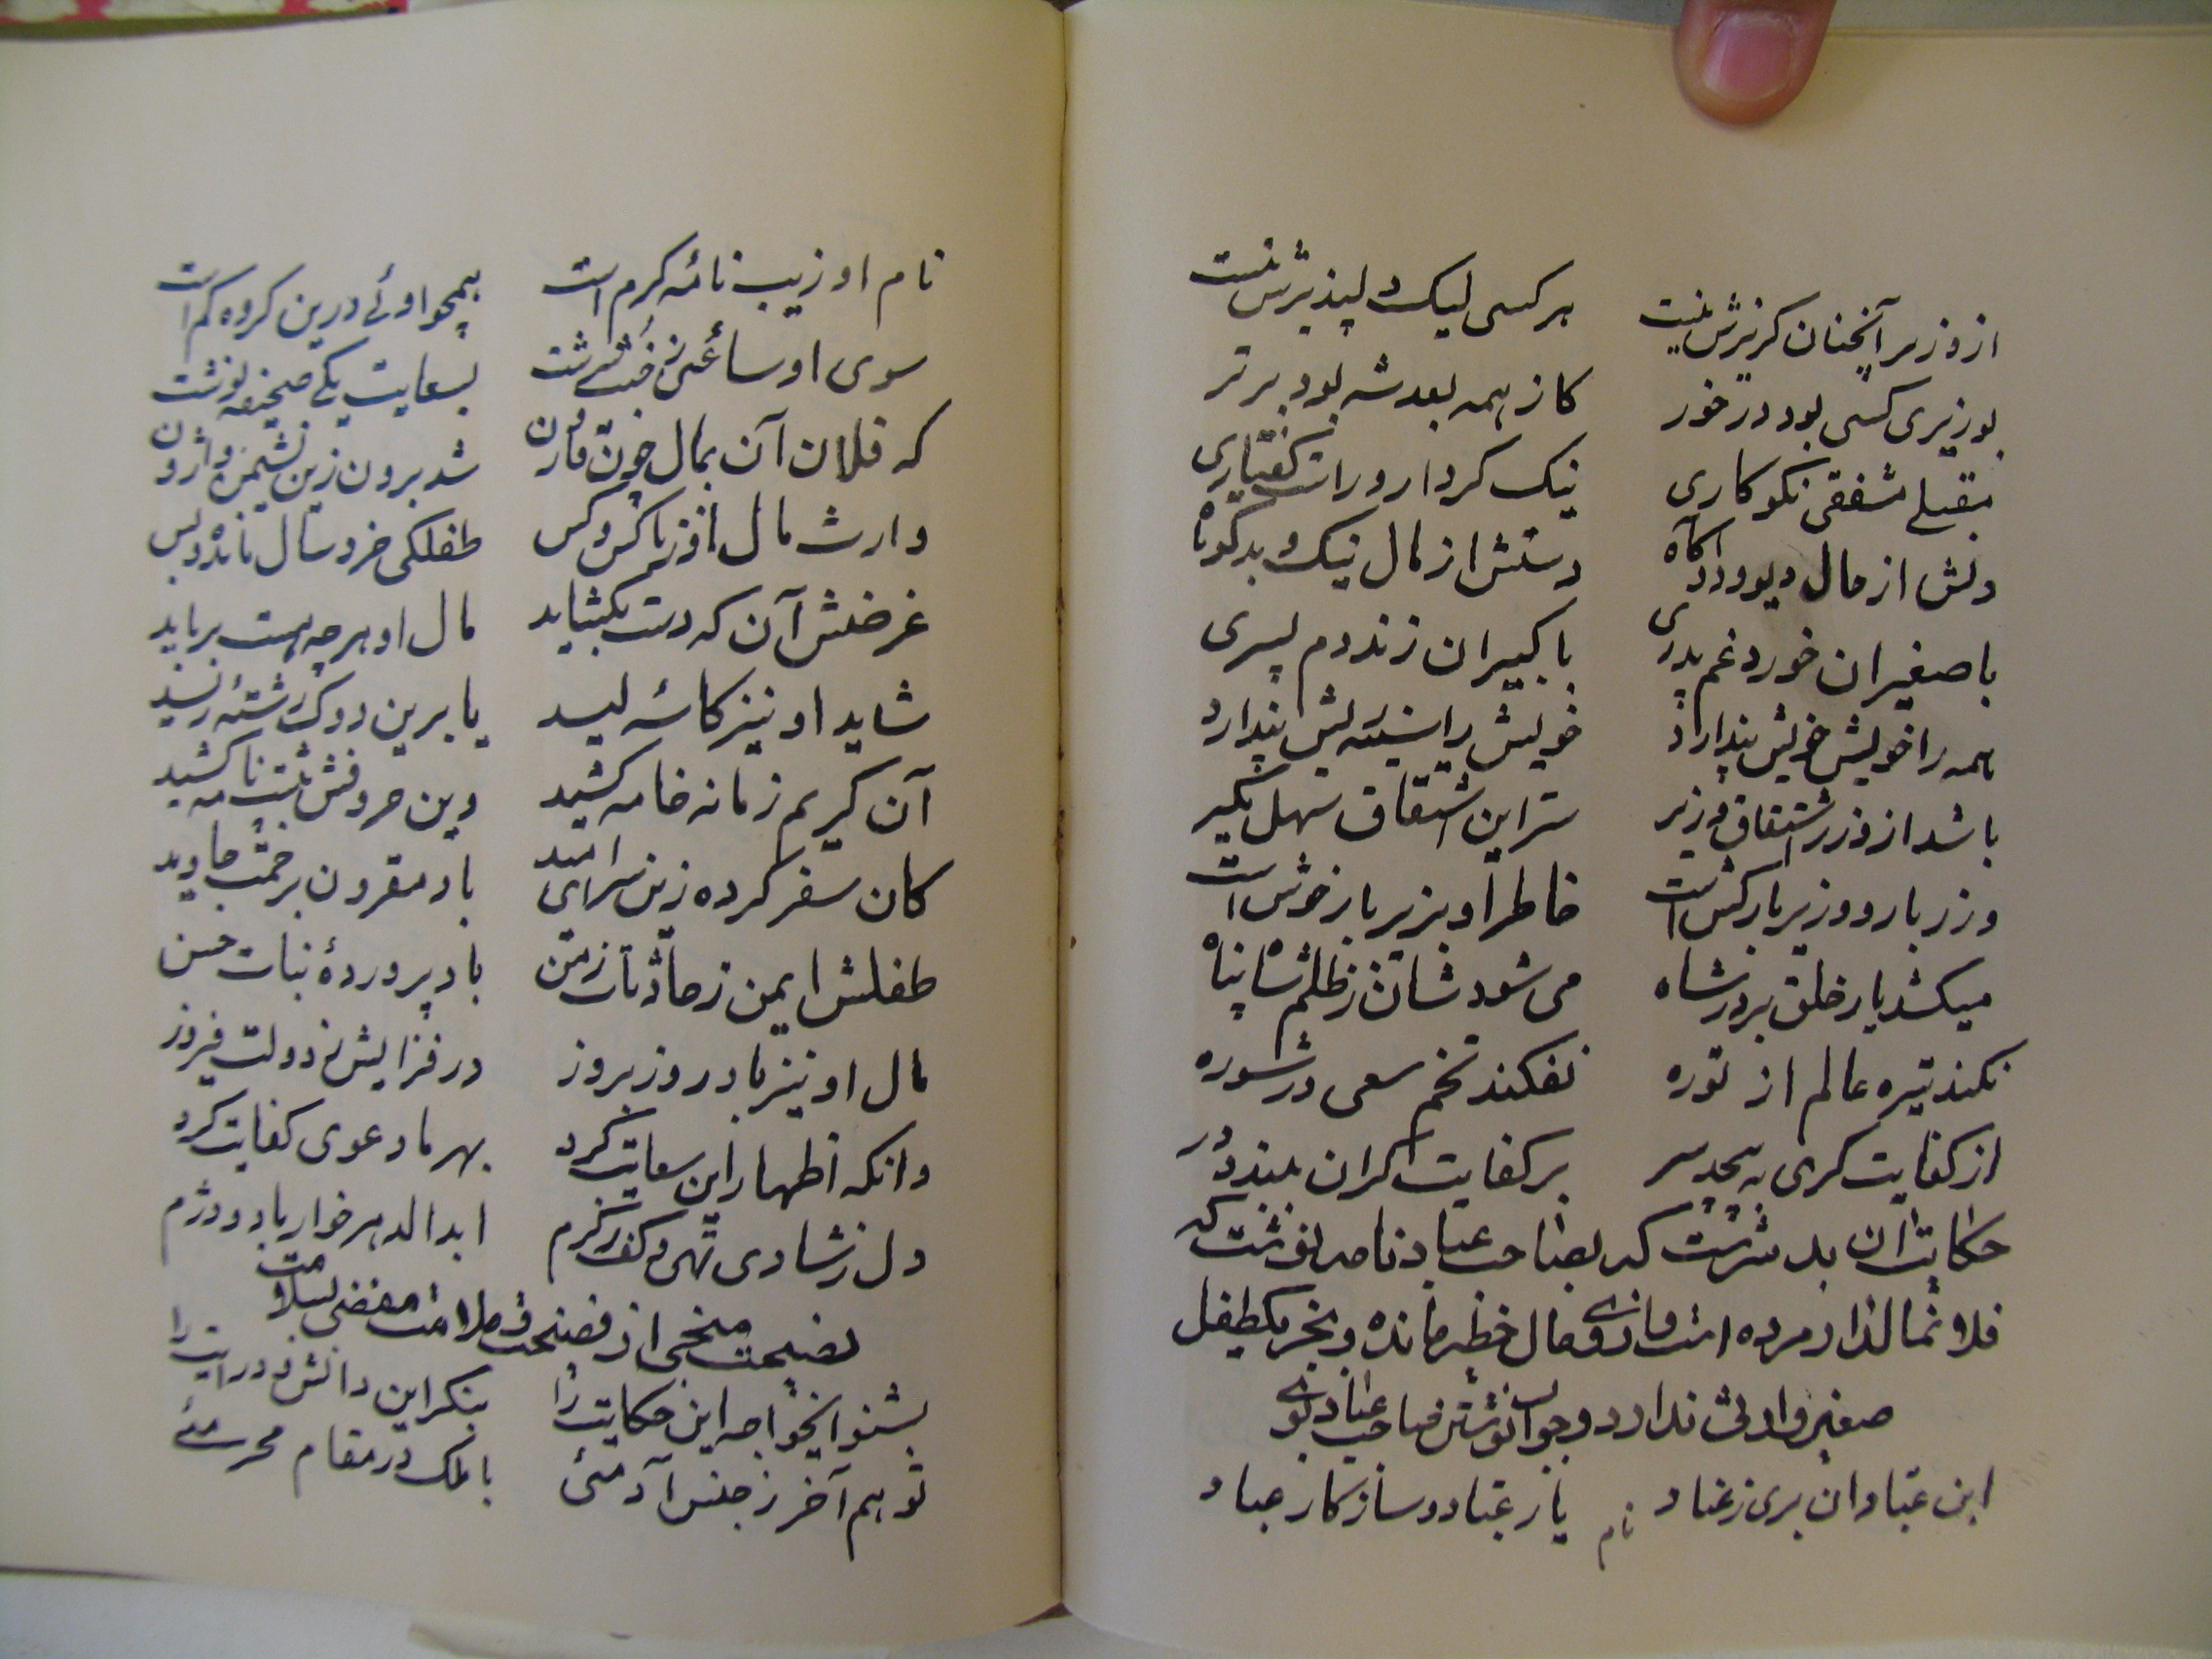 از وزیر آنچنان گزیرش نیست هر کسی لیک دلپذیرش نیست
بوزیری کسی بود در خور کاز همه بعد شه بود برتر
مقبلی مشفقی نکو کاری نیک کردار و راست گفتاری
دلش از حال دیو و دد آگاه دستش از مال نیک و بد کوتاه
با صغیران خورد غم پدری با کبیران زند دم پسری
همه را خویش خویش پندارد خویش را سینه ریش پندارد
باشد از وزر اشتقاق وزیر سر این اشتقاق سهل مگیر
وزر بار و وزیر بارکش است خاطر او بزیر بار خوش است
میکشد بار خلق بر در شاه می شود شان ز ظلم شاه پناه
نکند تیره عالم از توره نفکند تخم سعی در شوره
از کفایت گری به پیچد سر بر کفایت گران ببندد در
حکایت آن بد سرشت که بصاحب عباد نامه نوشت که
فلان مالدار مرده است و از وی مال خطیر مانده و بجز یکطفل
صغیر وارث ندارد و جواب نوشتن صاحب عباد بوی
ابن عباد آن بری ز عناد یار عباد و ساز کار عباد
نام
نام او زیب نامه کرم است همچو اوئی درین گروه کم است
سوی او ساعئی ز خبث سرشت بسعایت یکی صحیفه نوشت
که فلان آن بمال چون قارون شد برون زین نشیمن واژون
وارث مال او ز ناکس و کس طفلکی خرد سال مانده و بس
غرضش آن که دست بگشاید مال او هر چه هست برباید
شاید او نیز کاسه لیسد یا برین دوک رشته ریسد
آن کریم زمانه خامه کشید وین حروفش پشت نامه کشید
کان سفر کرده زین سرای امید باد مقرون برحمت جاوید
طفلش ایمن ز حادثات زمن باد پرورده نبات حسن
مال او نیز باد روز بروز در فزایش ز دولت فیروز
وانکه اظهار این سعایت کرد بهر ما دعوی کفایت کرد
دل ز شادی تهی و کف ز کرم ابد الدهر خوار باد و دژم
نصیحت منجی از فضیحت و ملامت مفضی بسلامت
بشنو ایخواجه این حکایت را بنگر این دانش و درایت را
تو هم آخر ز جنس آدمئی با ملک در مقام محرمئی